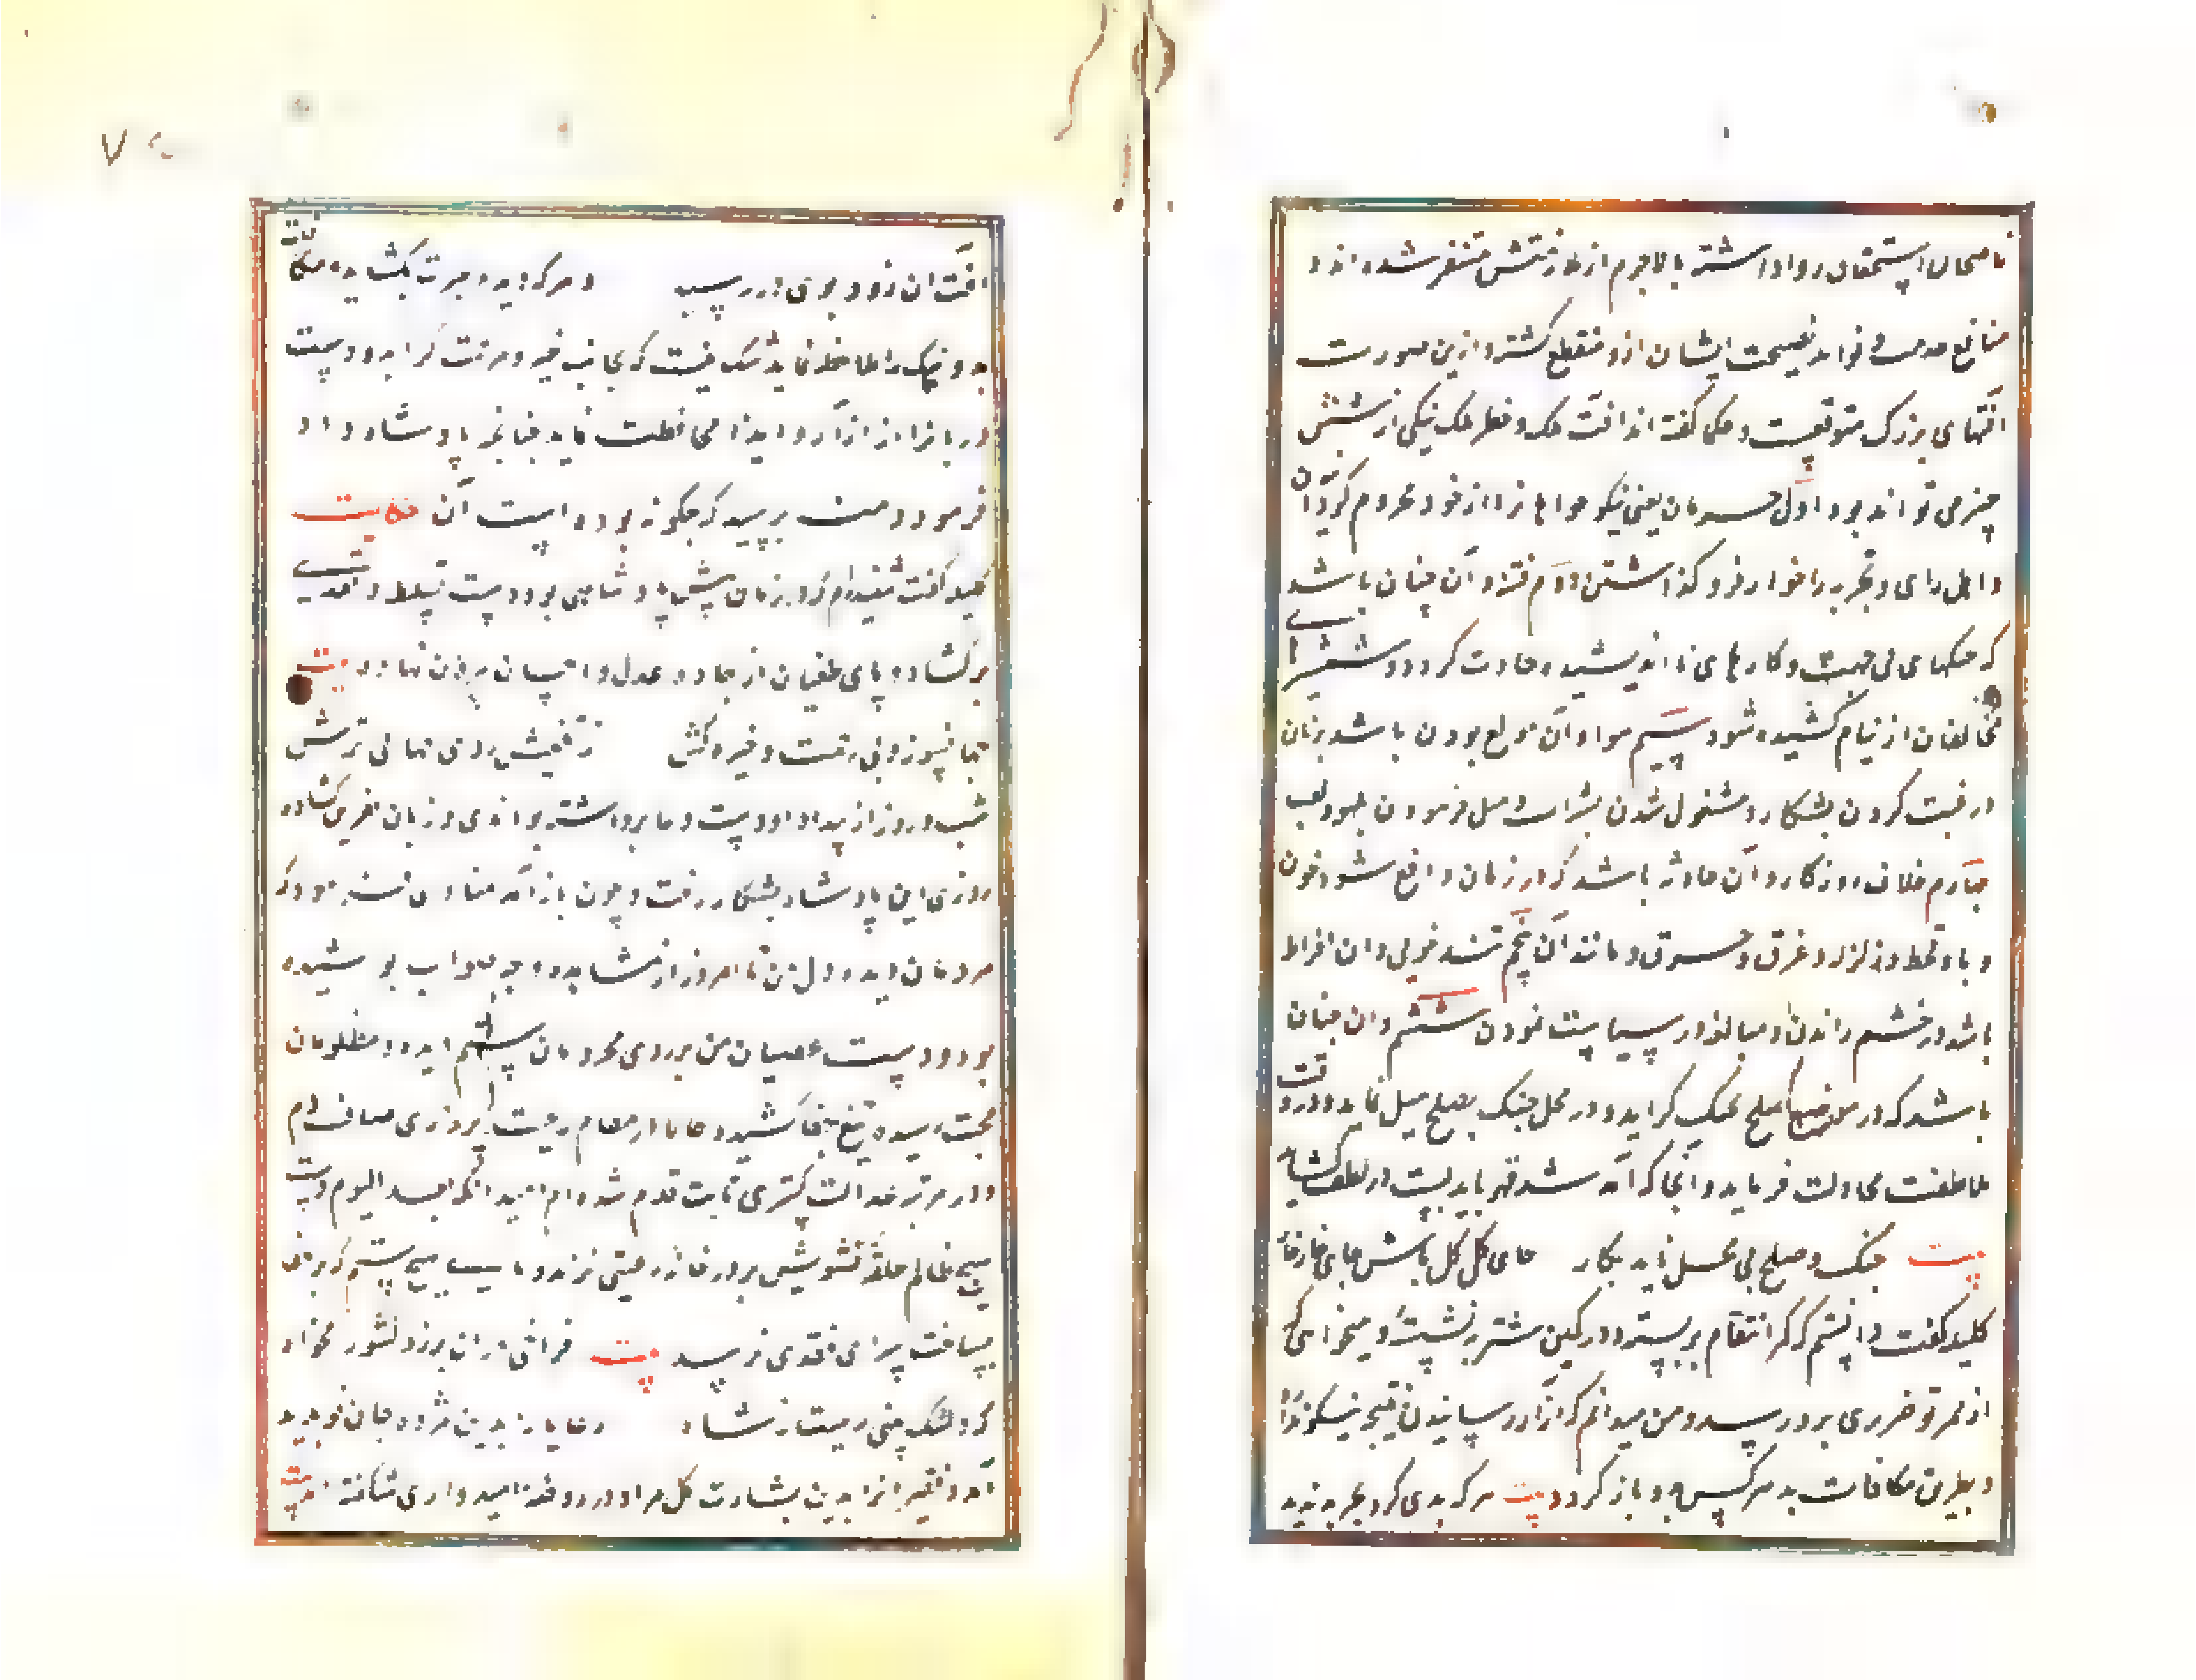 ناصحان استحقاق روا داشته با لاجرم از ملازمتش متنفر شده اند و
منافع خدمت و فواید نصیحت ایشان ازو منقطع کشته و ازین صورت
افتهای بزرک متوقعست و حکما کفته اند افت ملک و خطر ملک نیکی از شش
چیز می تواند بود اول حرمان یعنی نیکو خواهانرا از خود محروم کردان
و اهل رای و تجربه را خوار فرو کذاشتن دوم فتنه و آن چنان باشد
که جنکهای بی جهت و کارهای نا اندیشیده حادث کردد و شمشیرهای
مخالفان از نیام کشیده شود سیم هوا و آن مولع بودن باشد بزنان
و رغبت کردن بشکار و مشغول شدن بشراب و میل فرمودن بلهو و لعب
چهارم خلاف روزکار و آن حادثه باشد که در زمان واقع شود چون
وبا و قحط و زلزله و غرق و حرق و مانند آن پنجم تند خویی و ان افراط
باشد در خشم راندن و مبالغه در سیاست نمودن ششم و ان چنان
باشد که در موضع صلح بجنک کراید و در محل جنک بصلح میل نماید و در وقت
ملاطفت مجادلت فرماید و انجا که سد قهر باید بست در لطف کشاید
بیت جنک و صلح بی محل ناید بکار جای کل کل باش جای خار خار
کلیله کفت دانستم که کمر انتقام بر بسته و در کمین شتربه نشسته و میخواهی که
از ممر تو ضرری بدو رسد و من میدانم که آزار رسانیدن نتیجه نیکو ندارد
و بطریق مکافات بد هر کس بدو باز کردد بیت هر که بدی کرد بجز بد ندید
افت ان زود بوی در رسید و هر که دیده عبرت بکشاید و مکافات
بد و نیک را ملاحظه نماید شک نیست که بجانب خیر و مرحمت کراید و دست
و زبانرا از آزار و ایذا محافظت نماید چنانچه پادشاه داد
فرمود دمنه پرسید که چکونه بوده است آن حکایت
کلیله کفت شنیدم که در زمان پیش پادشاهی بود دست تسلط و تعدی
برکشاده و پای طغیان از جاده عدل و احسان بیرون نهاده بیت
جهانسوز و بی رحمت و خیره کش ز تلخیش روی جهانی ترش
شب و روز از بیداد او دست دعا برداشته بودندی و زبان نفرین کشاده
روزی این پادشاه بشکار رفت و چون باز آمد منادی فرمود که
مردمان دیده دل من تا امروز از مشاهده وجه صواب پوشیده
بود و دست عصیان من بر روی محرومان ستم دیده و مظلومان
محنت رسیده تیغ جفا کشیده حالا در مقام رعیت پروری صافی دم
و در مرتبه عدالت کستری ثابت قدم شده ام امید انکه بعد الیوم دست
هیچ ظالم حلقه تشویش بر در خانه رعیتی نزند و پای هیچ ستمکر بر
ساحت سرای فقیری نرسد بیت
که دلتنک بینی رعیت ز شاه رعایا را بدین مژده جان نو پدید
آمد و فقیرانرا بدین بشارت کل مراد در روضه امیدواری شکفته بیت